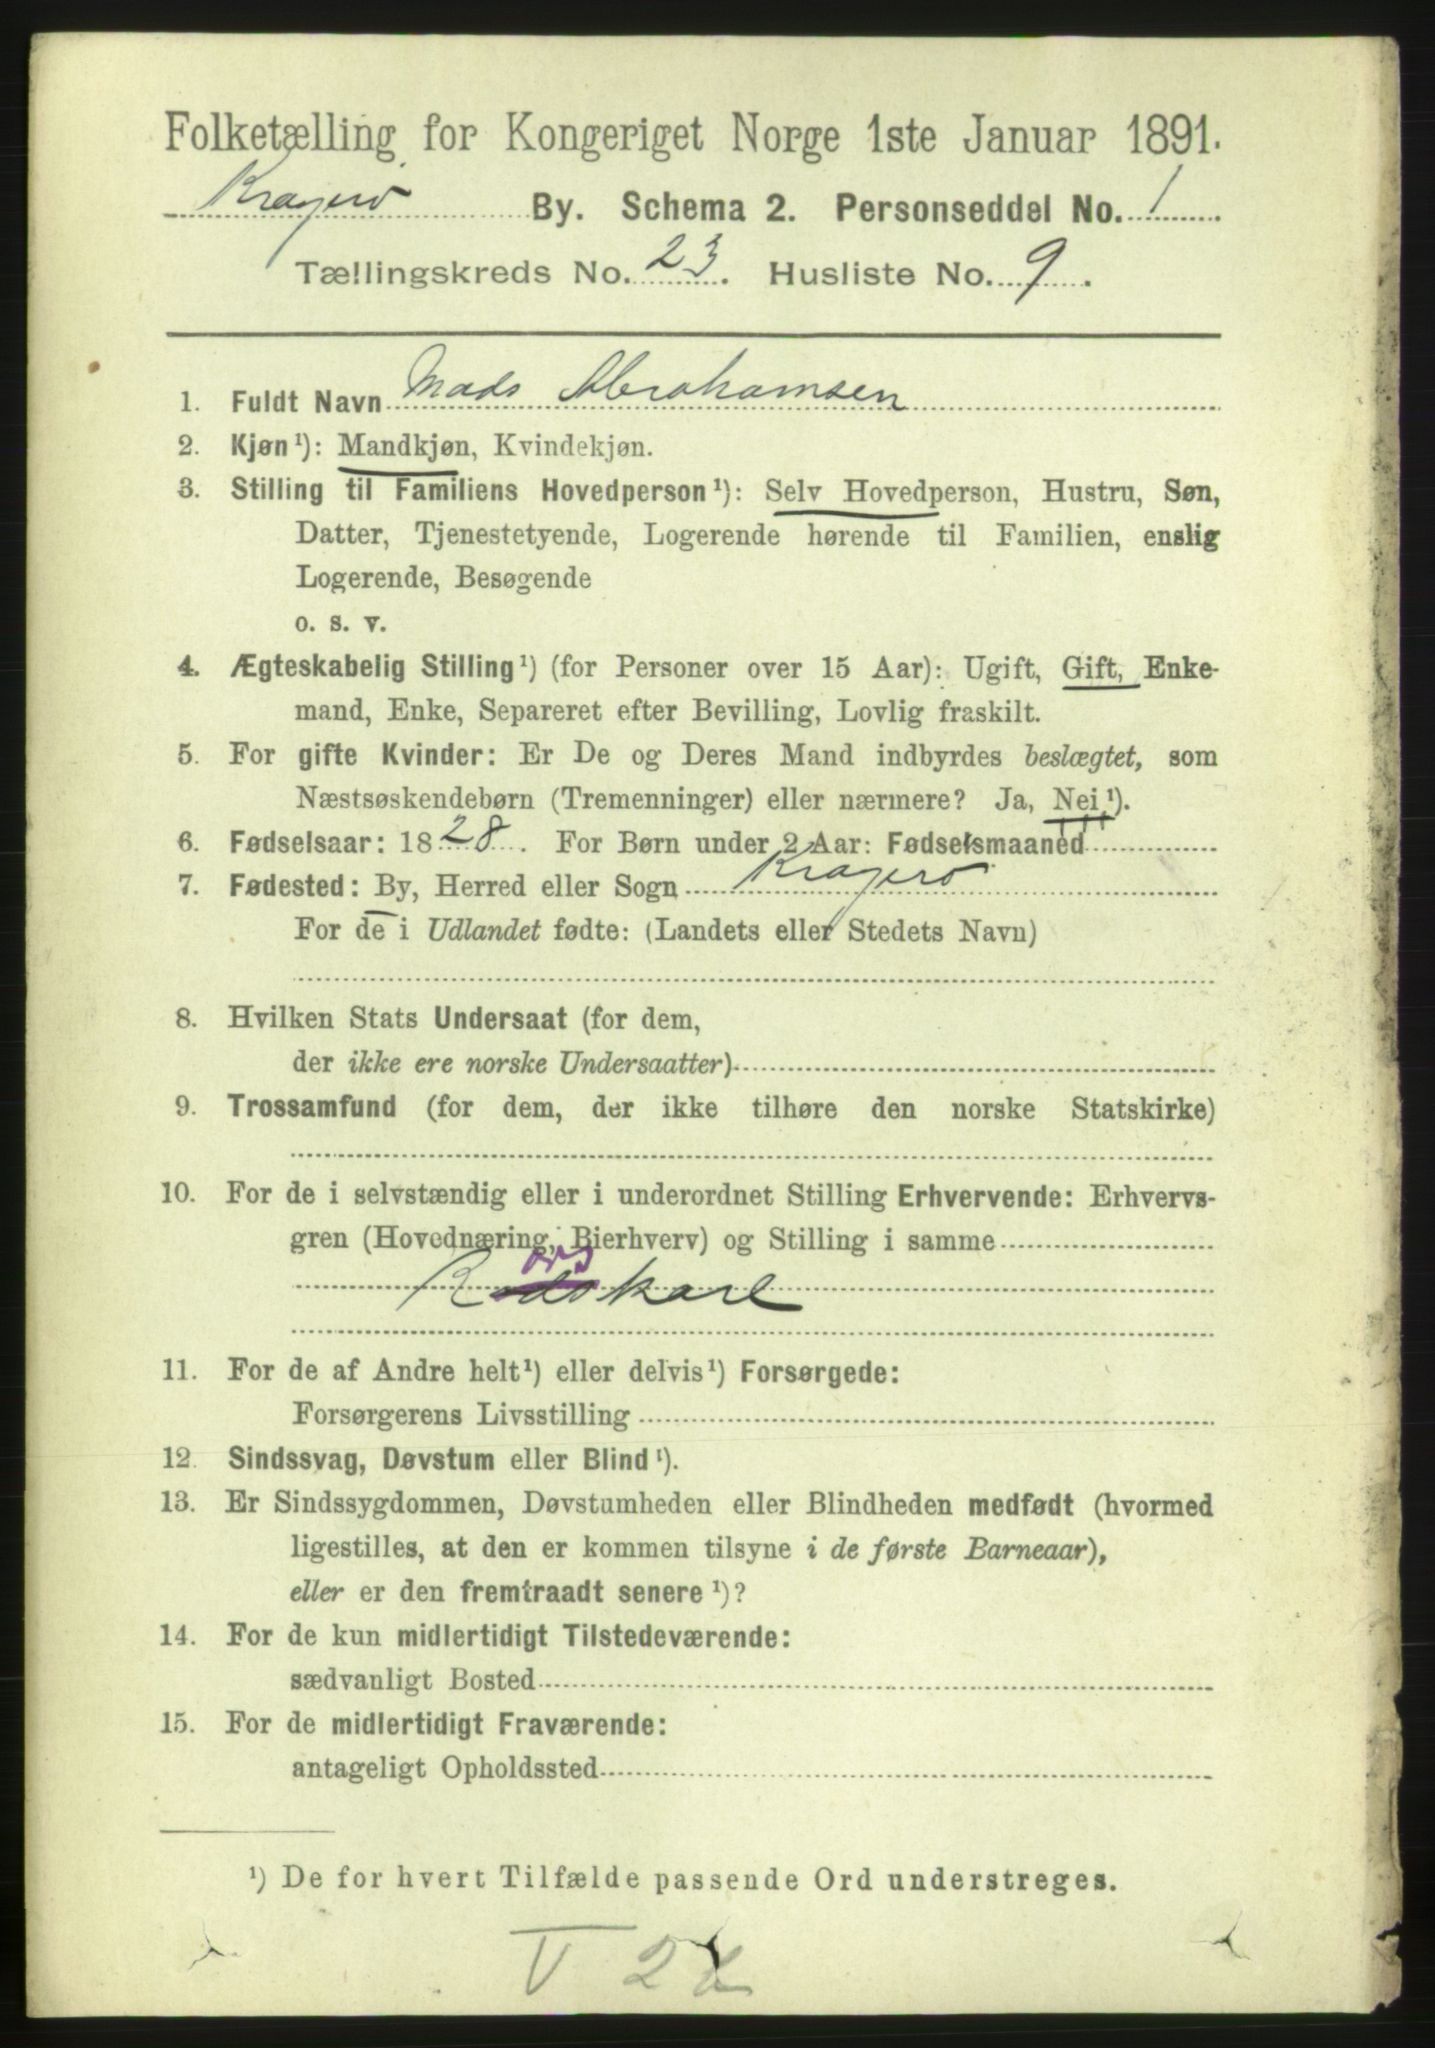 Folketælling for Kongeriget Norge 1ste Januar 1891.
Kragerø By. Schema 2. Personseddel No. 1
Tællingskreds No. 23. Husliste No. 9.
1. Fuldt Navn Mads Abrahamsen
2. Kjøn¹): Mandkjøn, Kvindekjøn.
3. Stilling til Familiens Hovedperson¹): Selv Hovedperson, Hustru, Søn,
Datter, Tjenestetyende, Logerende hørende til Familien, enslig
Logerende, Besøgende
o. s. v.
4. Ægteskabelig Stilling¹) (for Personer over 15 Aar): Ugift, Gift, Enke-
mand, Enke, Separeret efter Bevilling, Lovlig fraskilt.
5. For gifte Kvinder: Er De og Deres Mand indbyrdes beslægtet, som
Næstsøskendebørn (Tremenninger) eller nærmere? Ja, Nei¹).
6. Fødselsaar: 1828. For Børn under 2 Aar: Fødselsmaaned
7. Fødested: By, Herred eller Sogn Kragerø
For de i Udlandet fødte: (Landets eller Stedets Navn)
8. Hvilken Stats Undersaat (for dem,
der ikke ere norske Undersaatter)
9. Trossamfund (for dem, der ikke tilhøre den norske Statskirke)
10. For de i selvstændig eller i underordnet Stilling Erhvervende: Erhvervs-
gren (Hovednæring, Bierhverv) og Stilling i samme
ors
Rodskarl
11. For de af Andre helt¹) eller delvis¹) Forsørgede:
Forsørgerens Livsstilling
12. Sindssvag, Døvstum eller Blind¹).
13. Er Sindssygdommen, Døvstumheden eller Blindheden medfødt (hvormed
ligestilles, at den er kommen tilsyne i de første Barneaar),
eller er den fremtraadt senere¹)?
14. For de kun midlertidigt Tilstedeværende:
sædvanligt Bosted
15. For de midlertidigt Fraværende:
antageligt Opholdssted
¹) De for hvert Tilfælde passende Ord understreges.
V 2